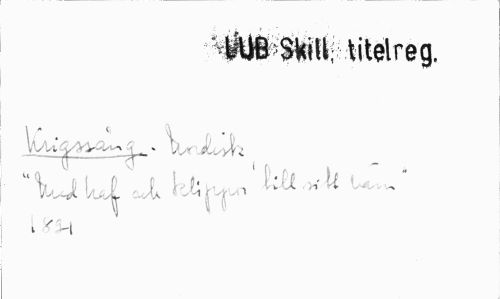 LUB Skill. titelreg.
Krigssång. Nordisk
"Med haf och klippor till sitt värn"
1821